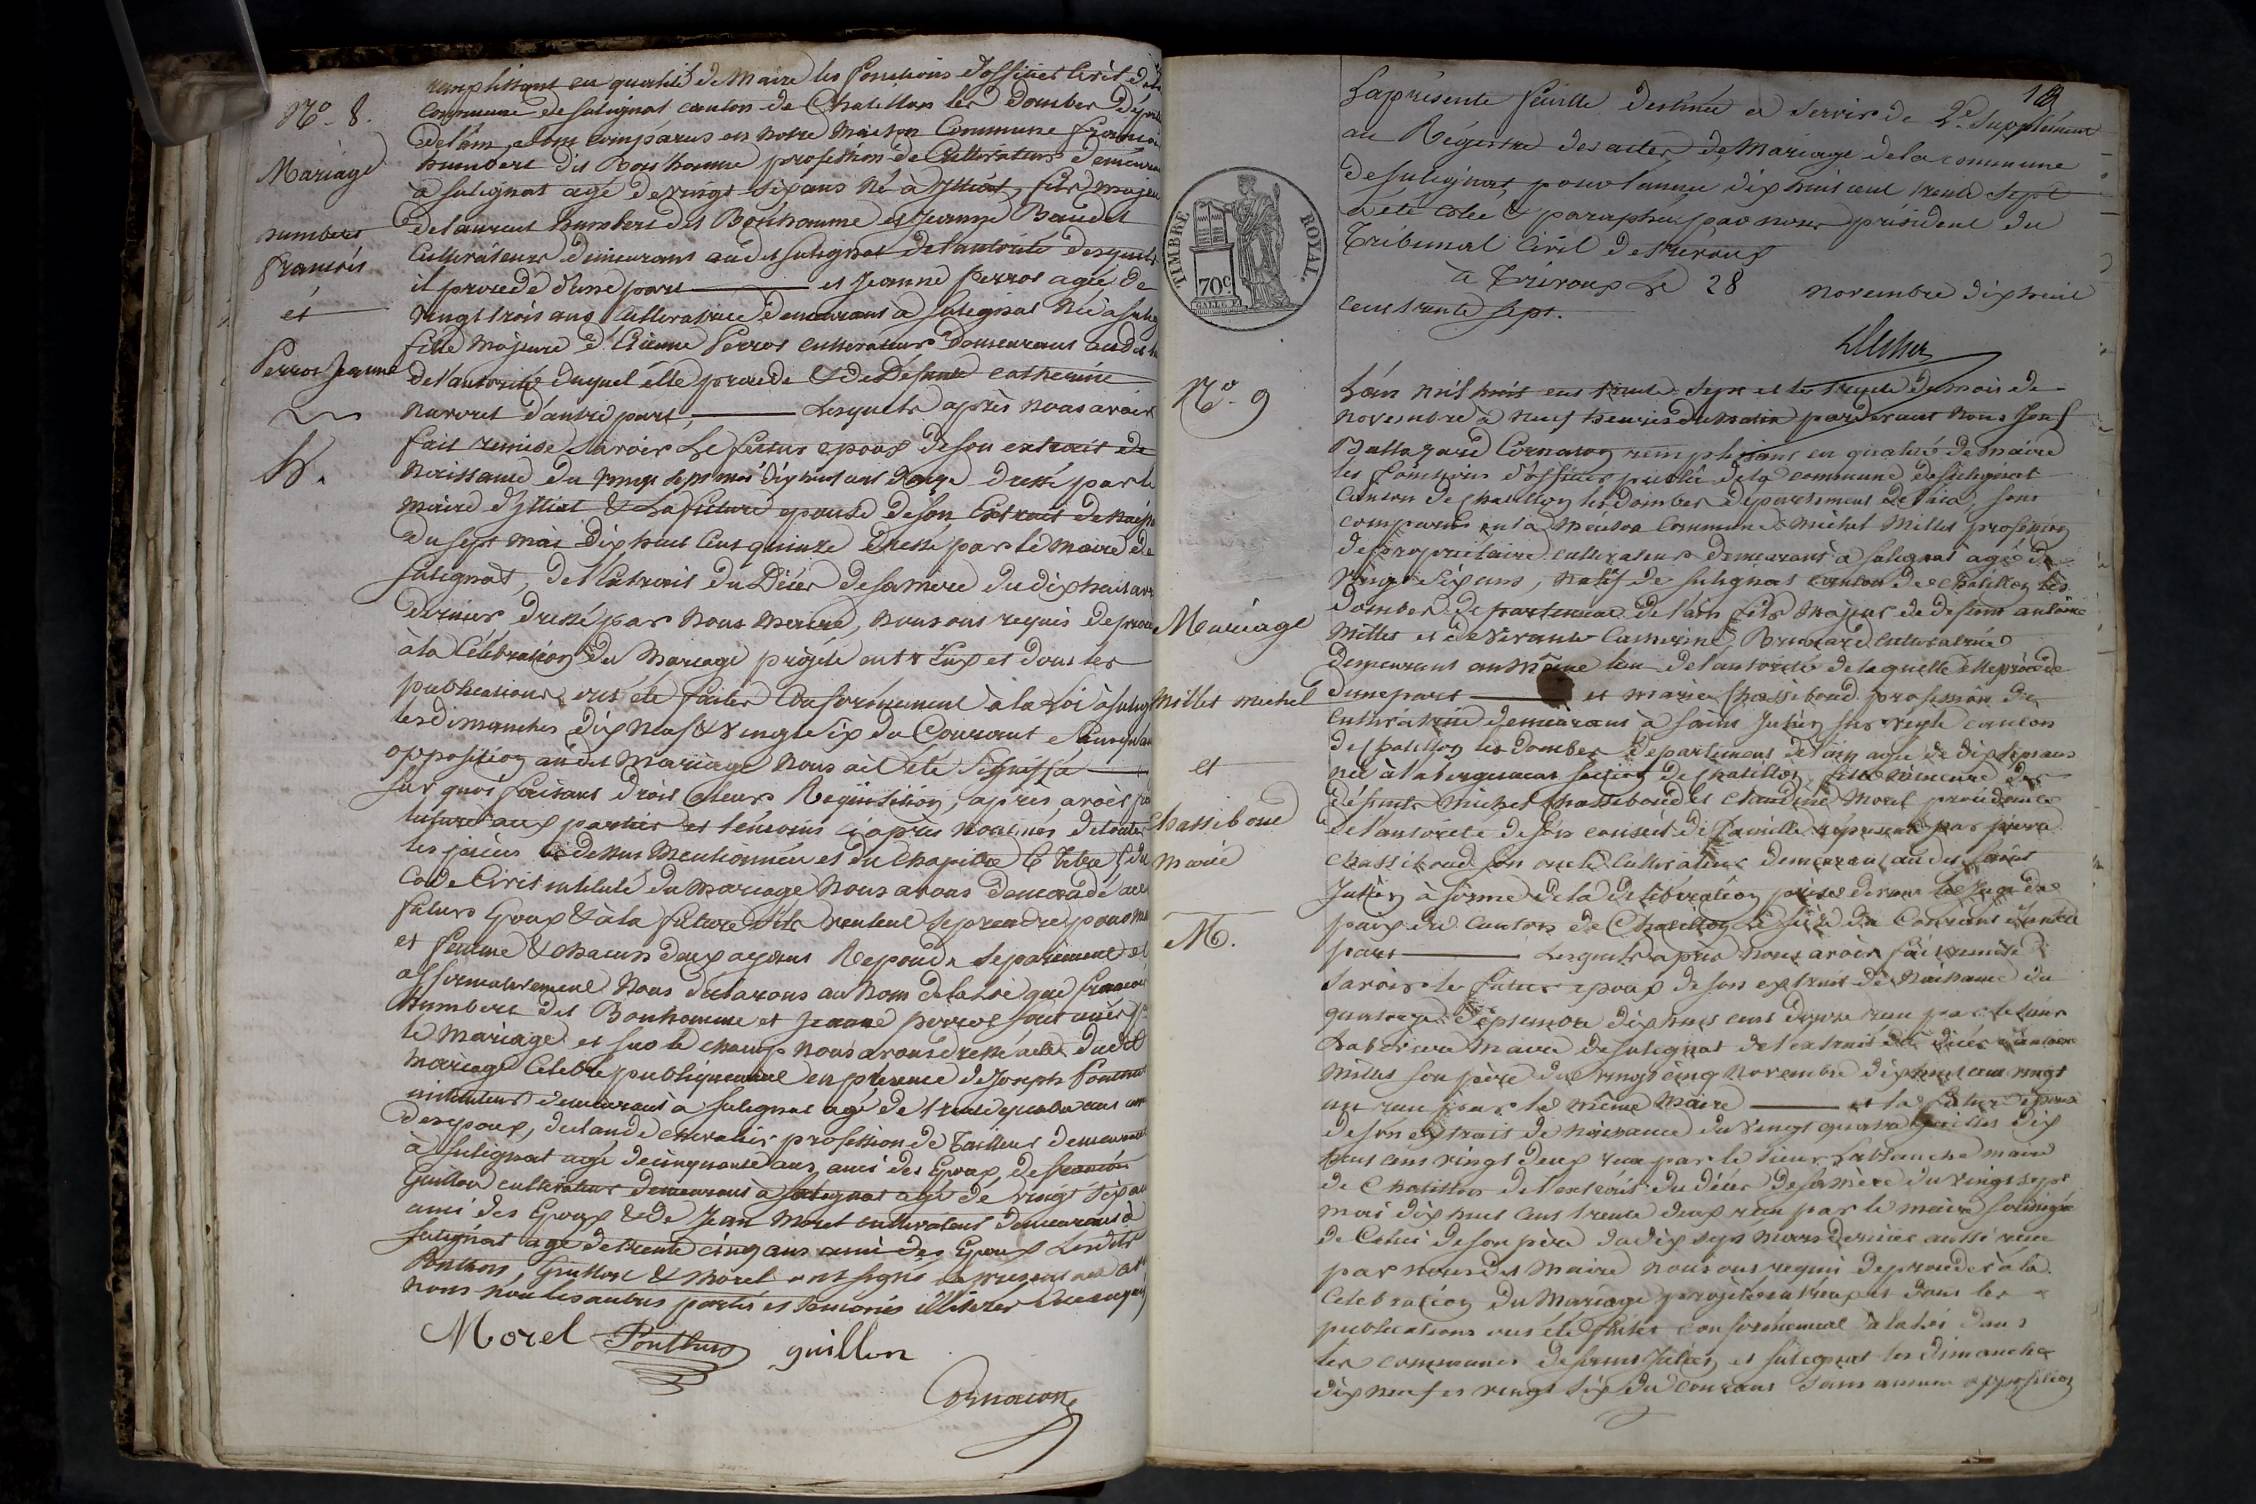 No. 8.
Mariage
humbert
françois
et
Perrot Jeanne
h.
remplissant en qualité de Maire les fonctions d'officier Civil de la
Commune de Sulignat canton de Chatillon les Dombes Dépt
De l'ain, sont comparus en notre Maison Commune françois
humbert dit Bonhomme profession de Cultivateur demeurant
à Sulignat agé de vingt six ans Né à Illiat, fils majeur
de laurent humbert dit Bonhomme et Jeanne Baudet
Cultivateurs demeurant audit Sulignat de l'autorité desquels
il procède d'une part et Jeanne Perrot agée de
vingt trois ans Cultivatrice demeurant à Sulignat Née à Sulig
fille Majeure d'Etienne Perrot cultivateur Demeurant audit
de l'autorité duquel elle procede & de Défunte catherine
d'autre part, Lesquels après nous avoir
fait remise Savoir Le futur epoux de son extrait de
Naissance du vingt sept mai dix huit cent onze Dressé par le
Maire d'Illiat & La future epouse de son Extrait de Naiss
du sept mai Dix huit Cent quinze Dressé par le Maire de
Sulignat, de l'Extrait du Décès de sa mère du dix huit
dernier dressé par Nous Maire, Nous ont requis de proce
à la Célébration du Mariage projété entr'Eux et dont les
publications ont été faites Conformement à la Loi à Sulig
les dimanches Dix Neuf & vingt Six du Courant & aucune
opposition audit Mariage Nous ait été Signiffié
Sur quoi faisant droit à leurs Requisition, après avoir
lecture aux parties et témoins ci après Nommés de toutes
les pièces ci dessus Mentionnées et du Chapitre 6 titre 5 du
Code Civil intitulé du Mariage Nous avons demandé au
futurs Epoux & à la future s'ils veulent se prendre pour M
et femme & chacun d'eux ayant Repondu Separement et
affirmativement Nous déclarons au Nom de la Loi que françois
Humbert dit Bonhomme et Jeanne perrot sont unis
le Mariage et sur le champ Nous avons dressé acte dudit
Mariage Célébré publiquement en présence de Joseph Ponthus
instituteur demeurant à Sulignat agé de trente quatre ans
des epoux, de Claude Chevalier profession de Tailleur demeurant
à Sulignat agé de cinquante ans, ami des Epoux, de françois
Guillon cultivateur demeurant à Sulignat agé de vingt six an
ami des Epoux & de Jean Morel cultivateur demeurant à
Sulignat agé de trente cinq ans ami des Epoux Lesdits
Ponthus, Guillon & Morel ont signé le present acte av
Nous Non les autres parties et temoins illitérés
Morel Ponthus guillon
Cornaton
18
La présente feuille destinée à Servir de 2e. Supplément
au Régistre des actes de Mariage de la commune
de Sulignat, pour l'année dix huit cent trente Sept
a été cotée & paraphée par nous président du
Tribunal Civil de Trévoux
à Trévoux Le 28 novembre dix huit
cent trente Sept.
TIMBRE ROYAL.
70c.
No. 9
Mariage
Millet michel
et
Chassiboud
marie
M.
L'an mil huit cent trente Sept et le trente du mois de
novembre à neuf heures du matin pardevant Nous Josef
Baltazard Cornaton remplissant en qualité de Maire
les fonctions d'officier public de la commune de Sulignat
Canton de Chatillon les Dombes département de l'ain, sont
comparus en la Maison Commune michel Millet profession
de propriétaire cultivateur demeurant à Sulignat agé de
vingt Six ans, natif de Sulignat canton de Chatillon les
Dombes département de l'ain fils Majeur de défunt antoine
Millet et de vivante Catherine cultivatrice
demeurant au Même lieu de l'autorité de laquelle il procède
d'une part et marie Chassiboud profession de
Cultivatrice demeurant à Saint Julien Sur veyle canton
de Chatillon les Dombes departement de l'ain agée de dix sept ans
née à l'abergement Section de Chatillon, fille mineure de
défunts Michel Chassiboud et Claudine Morel procédant de
de l'autorité de son conseil de famille représenté par pierre
Chassiboud son oncle Cultivateur demeurant audit Saint
Julien à forme de la délibération prise devant le Juge de
paix du Canton de Chatillon le Seize du Courant d'autre
part Lesquels après nous avoir fait remise
Savoir le futur epoux de son extrait de Naissance du
quatorze Septembre dix huit cent onze reçu par le sieur
Maire de Sulignat de l'extrait de décès d'antoine
Millet son père du vingt cinq Novembre dix huit cent vingt
un reçu par le même Maire et la future épouse
de son extrait de Naissance du vingt quatre Juillet dix
huit cent vingt deux reçu par le sieur Lablanche maire
de Chatillon de l'extrait du décès de sa mère du vingt sept
mai dix huit cent trente deux reçu par le maire soussigné
de Celui de son père du dix sept Mars dernier aussi reçu
par nous dit Maire Nous ont requis de procéder à la
Celebration du Mariage projeté entr'eux et dont les
publications ont été faites conformement à la loi dans
les communes de Saint Julien et Sulignat les dimanches
dix neuf et vingt Six du courant Sans aucune opposition